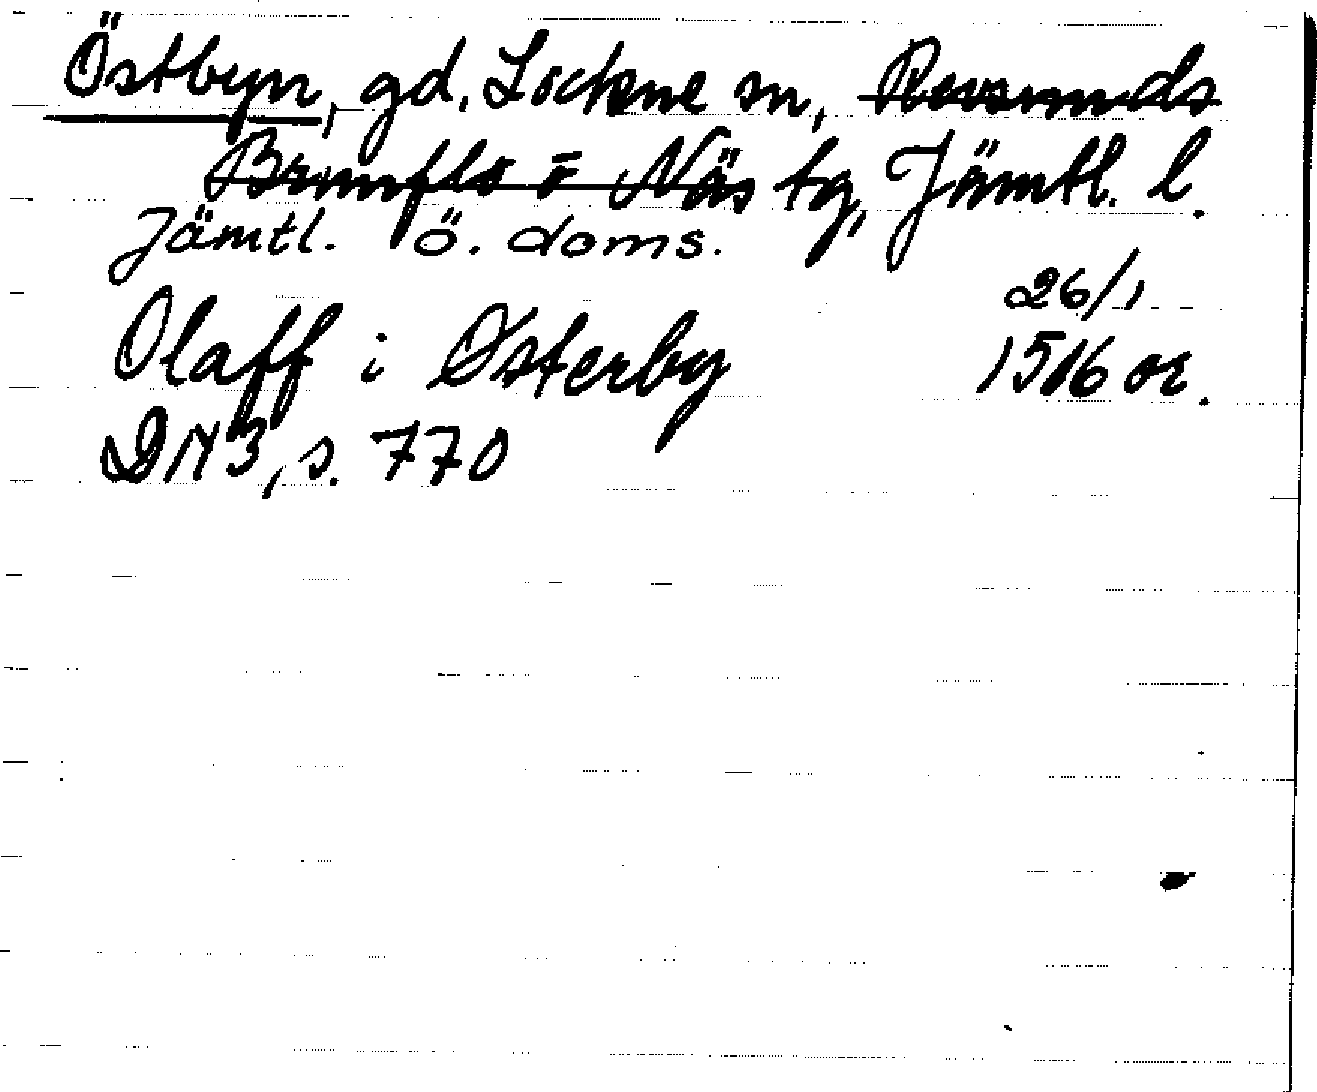 Östbyn, gd, Lockne sn, Revsunds
Brunflo o Näs tg, Jämtl. l.
Jämtl. ö. doms.
26/1
Olaff i Østerby 1516 or.
DN 3, s. 770